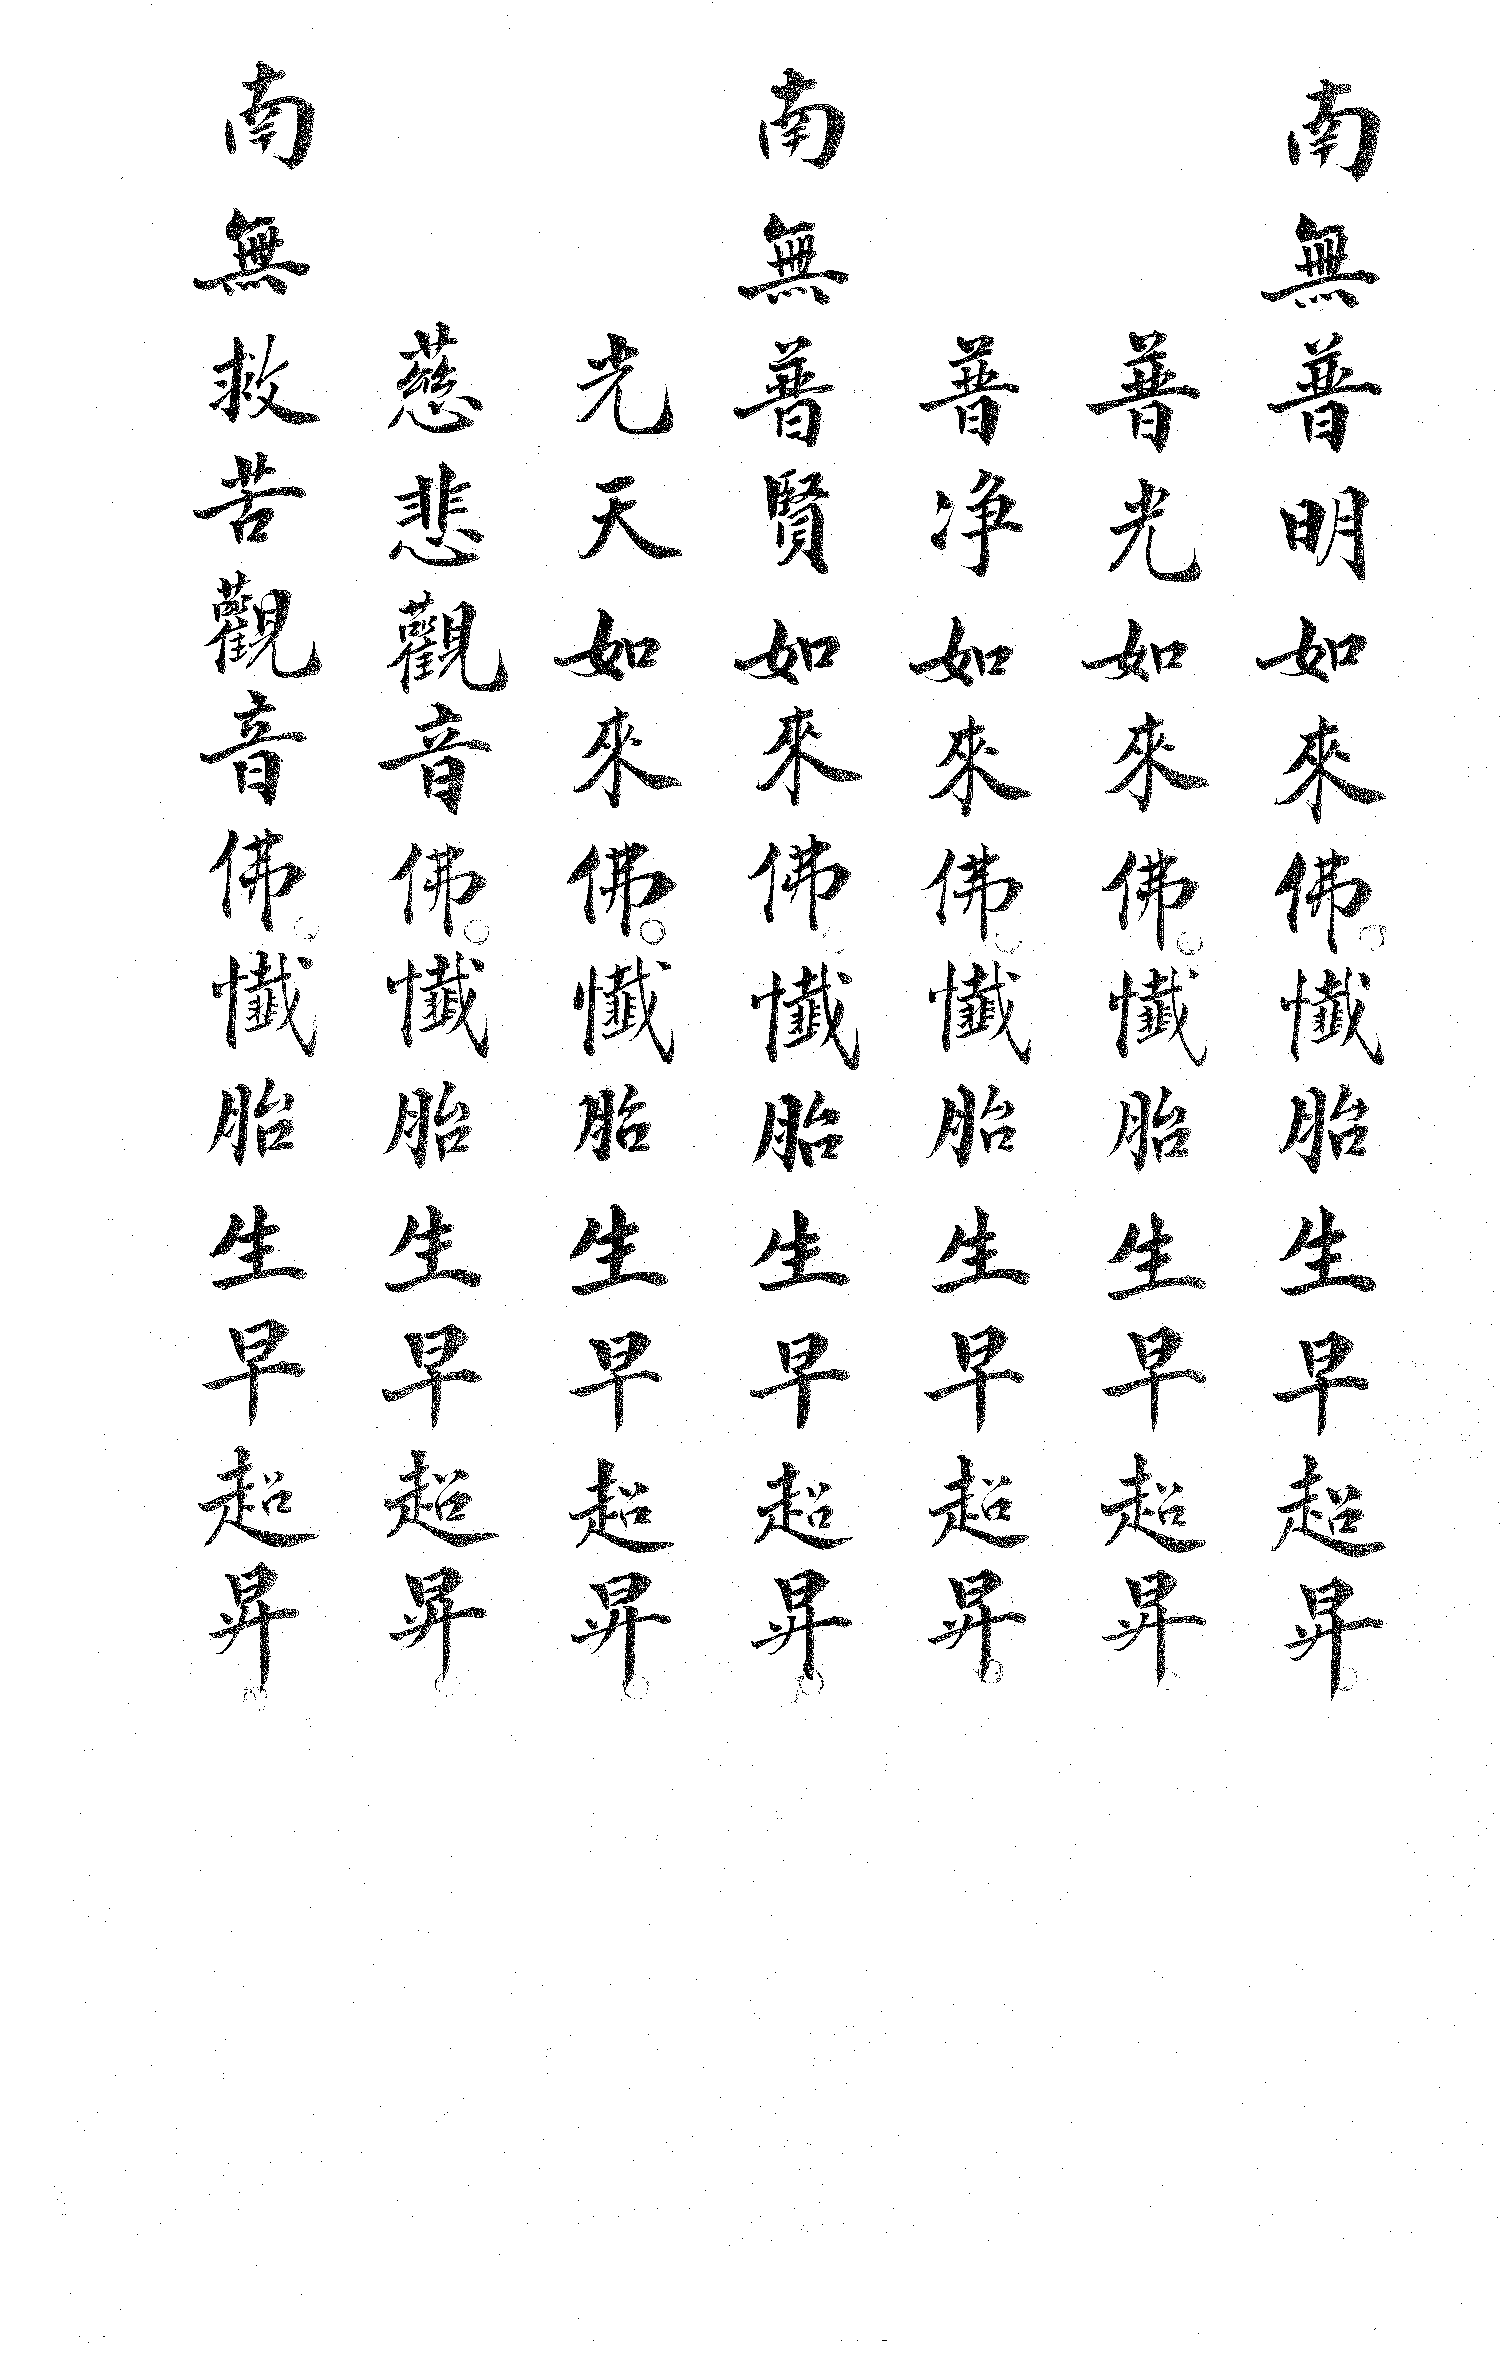 南無普明如來佛。懺胎生早超昇。
普光如來佛。懺胎生早超昇。
普净如來佛。懺胎生早超昇。
南無普賢如來佛。懺胎生早超昇。
光天如來佛。懺胎生早超昇。
慈悲觀音佛。懺胎生早超昇。
南無救苦觀音佛。懺胎生早超昇。